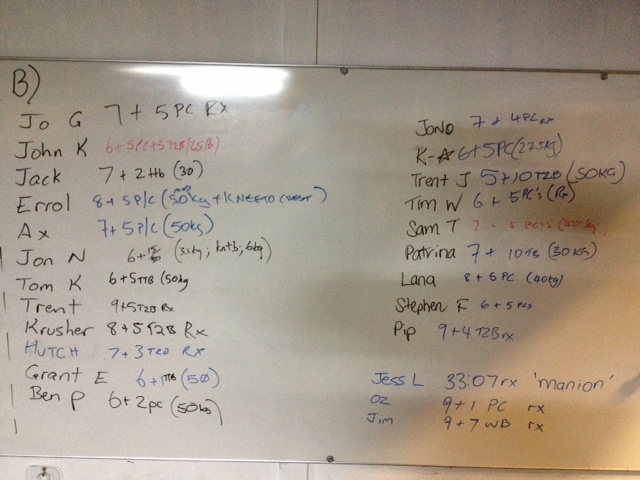 B)
Jo G 7 + 5 PC Rx
John K 6+5PC+5T2B/25/B)
Jack 7 + 2Hb (30)
Errol 8 + 5 P/C (50kg + KNEE TO CHEST)
Ax 7+5 P/C (50kg)
Jon N 6+ (35kg; kntb; 6kg)
Tom K 6+5TTB (50kg
Trent 9+5T2B Rx
Krusher 8+5T2B Rx
HUTCH 7+3 RX
Grant E 6+1TTB (50)
Ben P 6+2pc (50kg)
Jono 7 + 4PC rx
K-A 6+5PC(27.5kg)
Trent J 5+10T2B (50KG)
Tim W 6 + 5 PC's (Rx)
Sam T 7 + 5 PC's (50kg)
Patrina 7 + 10TB (30KG)
Lana 8+5 PC (40kg)
Stephen F 6+5pcs
Pip 9+4T2B rx
Jess L 33:07rx 'manion'
Oz 9+1 PC rx
Jim 9+7 WB rx